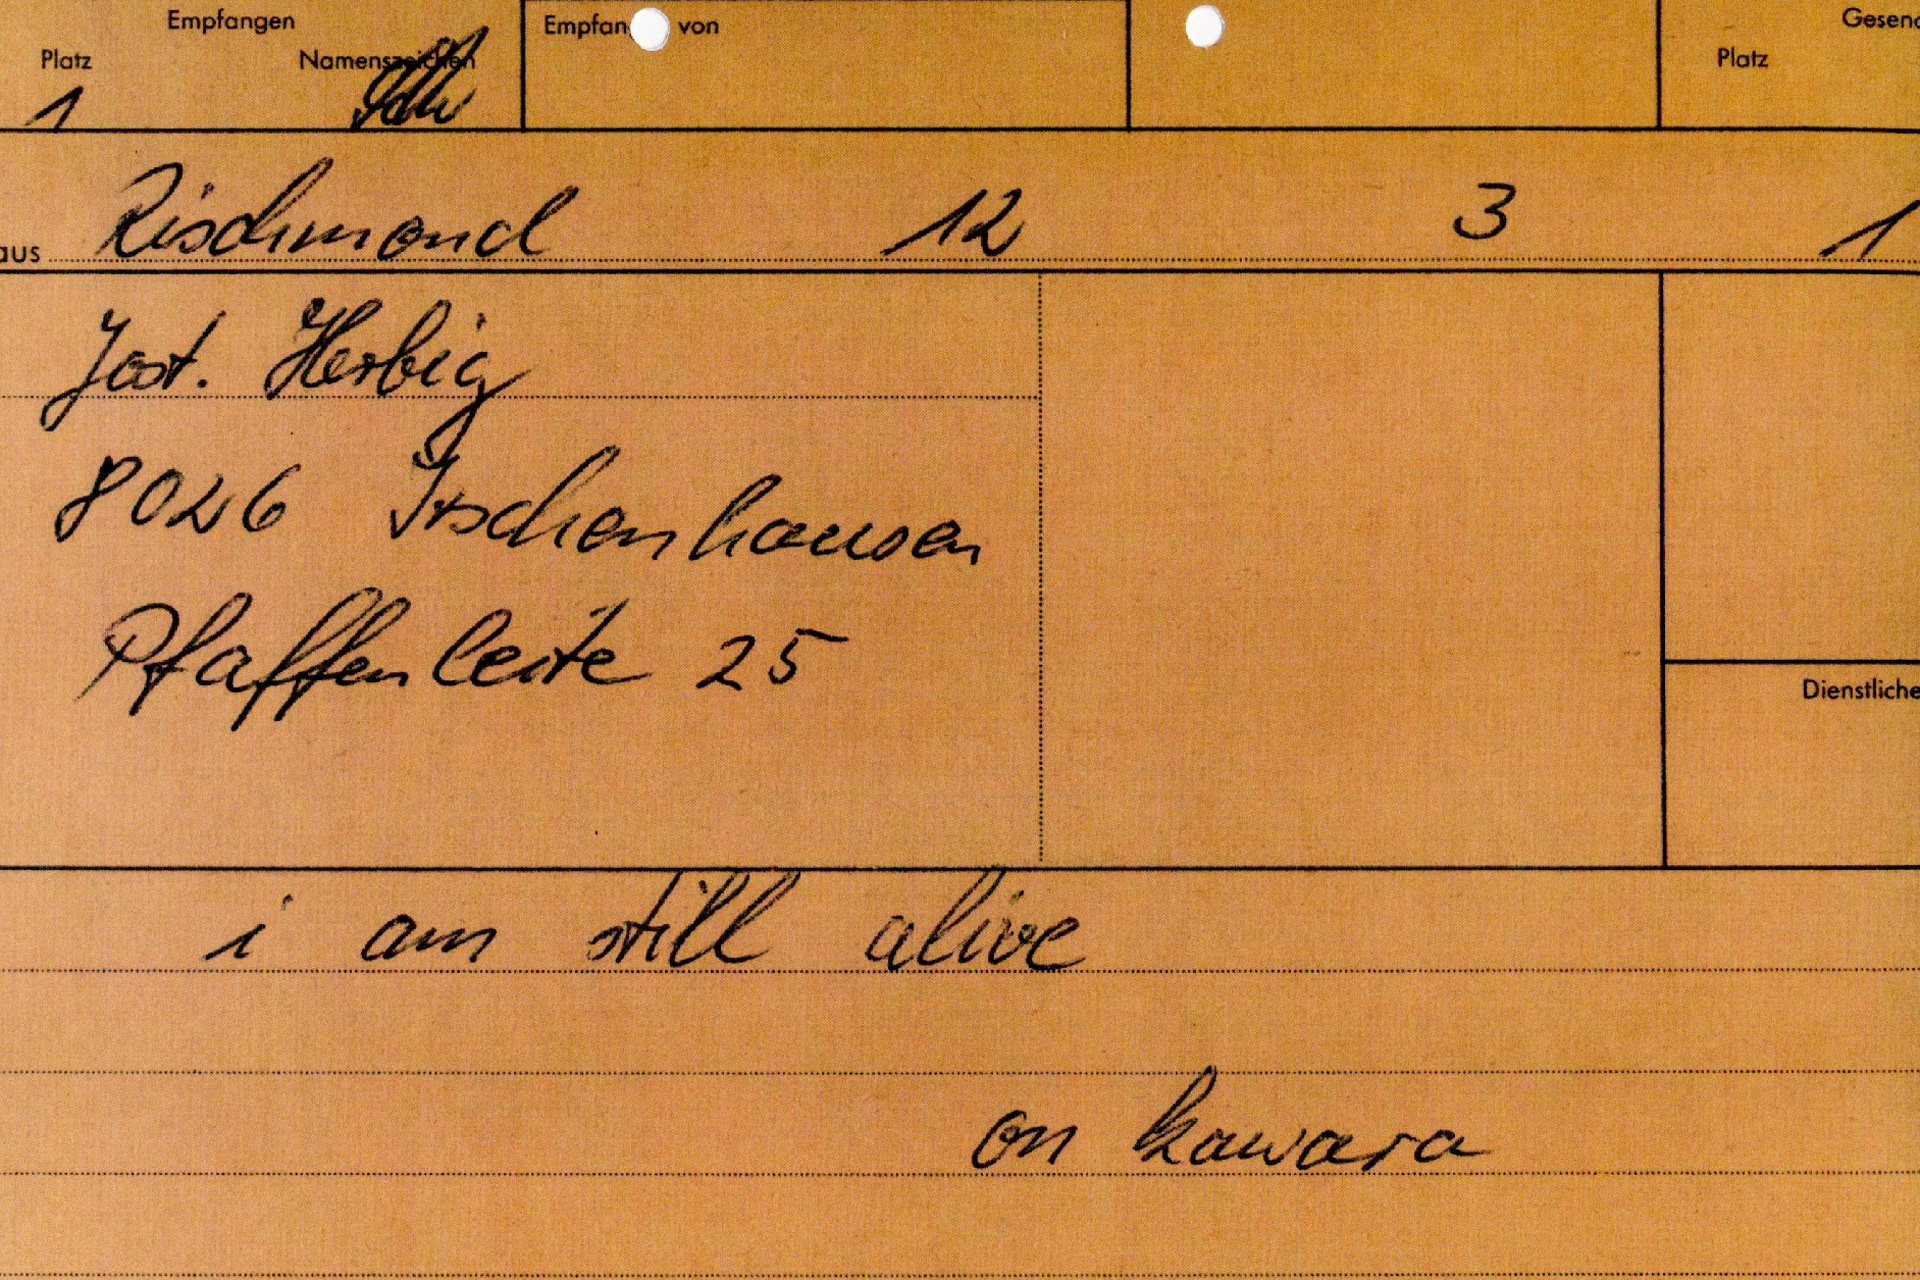 Empfangen
Platz Namenszeichen
1
Empfan von
Gesend
Platz
aus Rischmond 12 3 1
Jost. Herbig
8026 Irschenhausen
Pfaffenleite 25
Dienstliche
i am still alive
on kawara